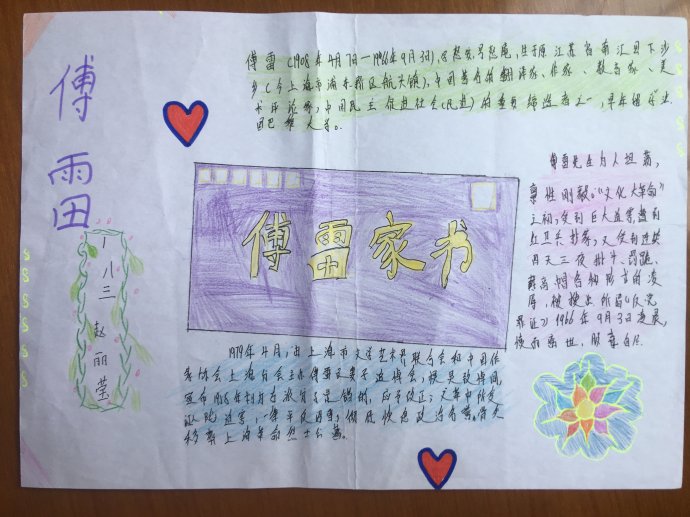 傅雷
一八三 赵丽莹
傅雷(1908年4月7日一1966年9月3日),字怒安,号怒庵,生于原江苏省南汇县下沙
乡(今上海市浦东新区航头镇),中国著名的翻译家、作家、教育家、美
术评论家,中国民主促进会(民进)的重要缔造者之一,早年留学
法国巴黎大学。
傅雷家书
傅雷先生为人坦荡,
禀性刚毅,“文化大革命”
之初,受到巨大
红卫兵抄家,又受到连续
四天三夜批斗、罚跪、
戴高帽等各种形式的凌
辱,被搜出所谓《反党
罪证》1966年9月3日凌晨,
愤而离世,服毒自尽
1979年4月,由上海市文学艺术界联合会和中国作
家协会上海分会主办傅雷夫妻平反追悼会,
宣布1958年划为右派分子是错的,应予改正;文革中所受
诬陷迫害,一律平反昭雪;彻底恢复政治名誉。骨灰
移葬上海革命烈士公墓。